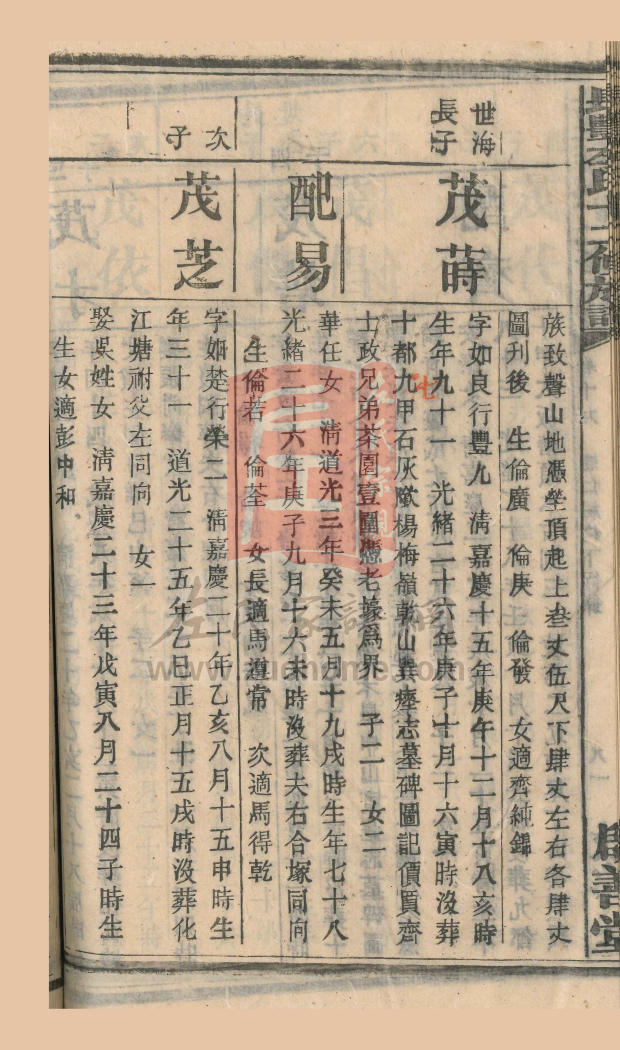 族致聲山地憑塋頂起上叄丈伍尺下肆丈左右各肆丈
圖刋後 生倫廣 倫庚 倫發 女適齊純錦
世海長子
茂蒔
字如良行豐九 淸嘉慶十五年庚午十二月十八亥時
生年九十一 光緒二十六年庚子十月十六寅時沒葬
十都九甲石灰歐楊梅嶺乾山巽塟志墓碑圖記價買齊
士政兄弟茶園壹圍憑老據爲界 子二 女二
配易
華任女 淸道光三年癸未五月十九戌時生年七十八
光緒二十六年庚子九月十六未時沒葬夫右合塚同向
生倫若 倫荃 女長適馬遵常 次適馬得乾
次子
茂芝
字如楚行榮二 淸嘉慶二十年乙亥八月十五申時生
年三十一 道光二十五年乙巳正月十五戌時沒葬化
江塘祔父左同向 女一
娶吳姓女 淸嘉慶二十三年戊寅八月二十四子時生
生女適彭中和
啟善堂
www.zuchome.com